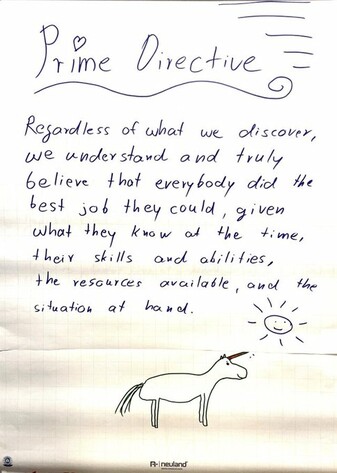 Prime Directive
Regardless of what we discover,
we understand and truly
believe that everybody did the
best job they could, given
what they know at the time,
their skills and abilities,
the resources available, and the
situation at hand.
neuland